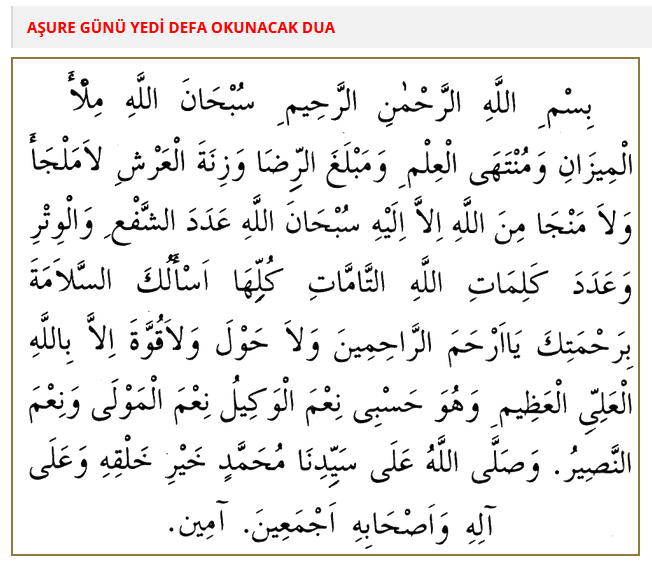 AŞURE GÜNÜ YEDİ DEFA OKUNACAK DUA
بِسْمِ اللَّهِ الرَّحْمٰنِ الرَّحِيمِ سُبْحَانَ اللَّهِ مِلْأَ
الْمِيزَانِ وَمُنْتَهَى الْعِلْمِ وَمَبْلَغَ الرِّضَا وَزِنَةَ الْعَرْشِ لاَمَلْجَأَ
وَلاَ مَنْجَا مِنَ اللَّهِ اِلاَّ اِلَيْهِ سُبْحَانَ اللَّهِ عَدَدَ الشَّفْعِ وَالْوِتْرِ
وَعَدَدَ كَلِمَاتِ اللَّهِ التَّامَّاتِ كُلِّهَا اَسْأَلُكَ السَّلاَمَةَ
بِرَحْمَتِكَ يَااَرْحَمَ الرَّاحِمِينَ وَلاَ حَوْلَ وَلاَقُوَّةَ اِلاَّ بِاللَّهِ
الْعَلِىِّ الْعَظِيمِ وَهُوَ حَسْبِى نِعْمَ الْوَكِيلُ نِعْمَ الْمَوْلَى وَنِعْمَ
النَّصِيرُ. وَصَلَّى اللَّهُ عَلَى سَيِّدِنَا مُحَمَّدٍ خَيْرِ خَلْقِهِ وَعَلَى
آلِهِ وَاَصْحَابِهِ اَجْمَعِينَ. آمِين.